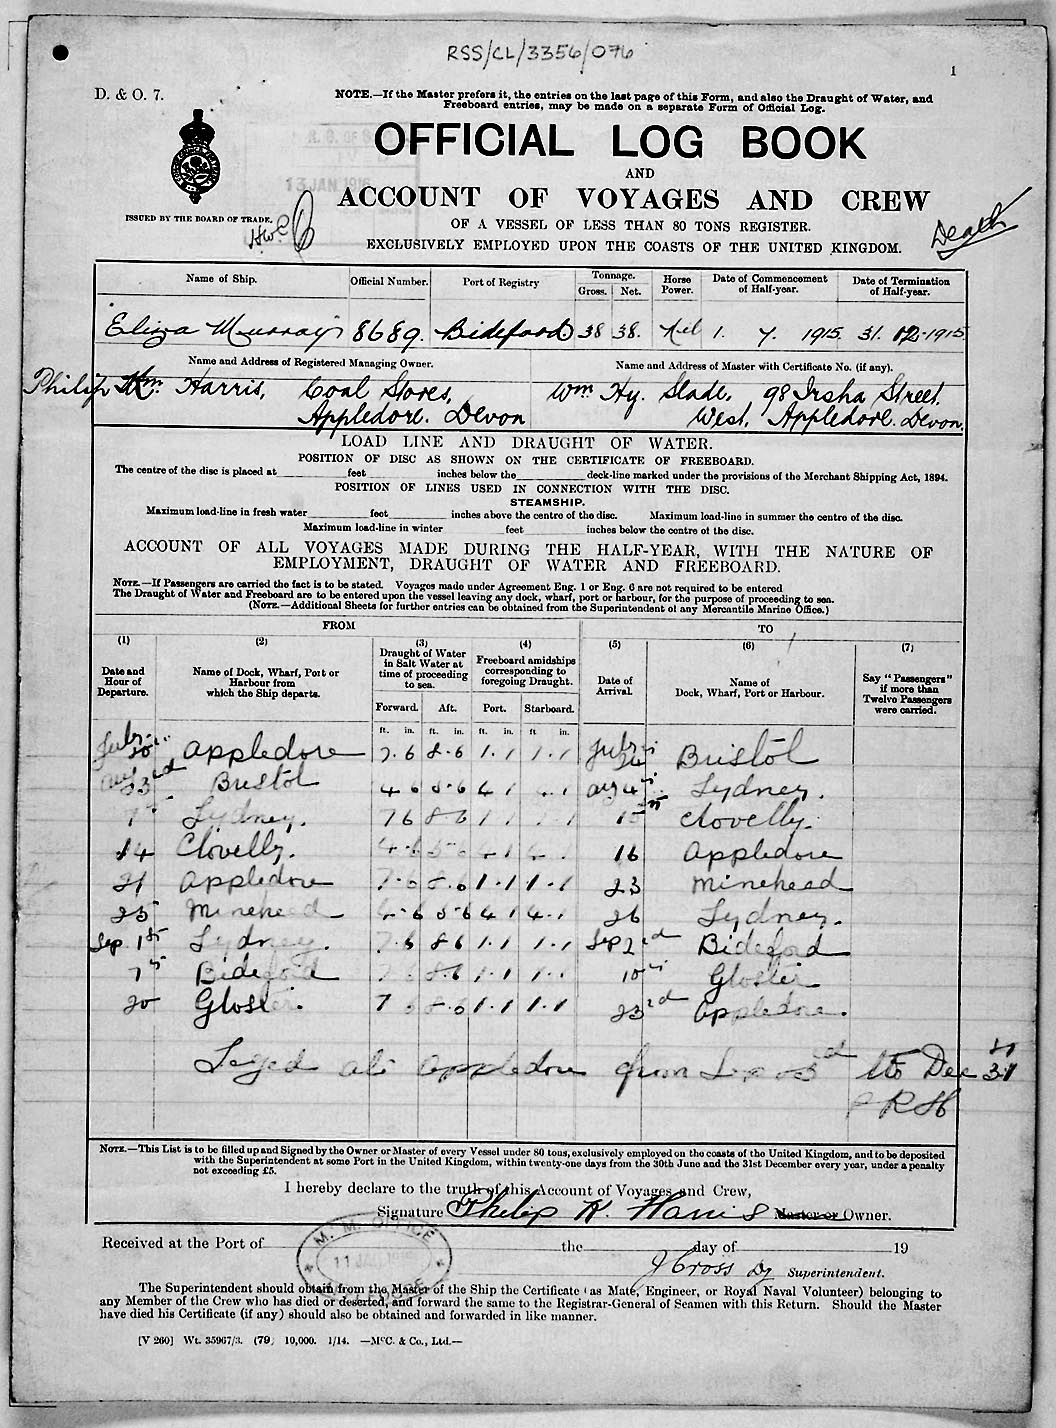 RSS/CL/3356/076
1
D. & O. 7.
NOTE.—If the Master prefers it, the entries on the last page of this Form, and also the Draught of Water, and
Freeboard entries, may be made on a separate Form of Official Log.
OFFICIAL LOG BOOK
AND
13 JAN 1916
ACCOUNT OF VOYAGES AND CREW
ISSUED BY THE BOARD OF TRADE.
OF A VESSEL OF LESS THAN 80 TONS REGISTER.
Death
EXCLUSIVELY EMPLOYED UPON THE COASTS OF THE UNITED KINGDOM.
Name of Ship. Official Number. Port of Registry Tonnage. Gross. Net. Horse Power. Date of Commencement of Half-year. Date of Termination of Half-year.
Eliza Murray 8689. Bideford. 38 38. Nil 1. 7. 1915. 31. 12. 1915
Name and Address of Registered Managing Owner. Name and Address of Master with Certificate No. (if any).
Philip Harris, Coal Stores, Wm Hy. Slade, 98 Irsha Street,
Appledore. Devon West, Appledore. Devon.
LOAD LINE AND DRAUGHT OF WATER.
POSITION OF DISC AS SHOWN ON THE CERTIFICATE OF FREEBOARD.
The centre of the disc is placed at feet inches below the deck-line marked under the provisions of the Merchant Shipping Act, 1894.
POSITION OF LINES USED IN CONNECTION WITH THE DISC.
STEAMSHIP.
Maximum load-line in fresh water feet inches above the centre of the disc. Maximum load-line in summer the centre of the disc.
Maximum load-line in winter feet inches below the centre of the disc.
ACCOUNT OF ALL VOYAGES MADE DURING THE HALF-YEAR, WITH THE NATURE OF
EMPLOYMENT, DRAUGHT OF WATER AND FREEBOARD.
NOTE.—If Passengers are carried the fact is to be stated. Voyages made under Agreement Eng. 1 or Eng. 6 are not required to be entered
The Draught of Water and Freeboard are to be entered upon the vessel leaving any dock, wharf, port or harbour, for the purpose of proceeding to sea.
(NOTE.—Additional Sheets for further entries can be obtained from the Superintendent of any Mercantile Marine Office.)
FROM TO
(1) (2) (3) (4) (5) (6) (7)
Date and Hour of Departure. Name of Dock, Wharf, Port or Harbour from which the Ship departs. Draught of Water in Salt Water at time of proceeding to sea. Freeboard amidships corresponding to foregoing Draught. Date of Arrival. Name of Dock, Wharf, Port or Harbour. Say "Passengers" if more than Twelve Passengers were carried.
Forward. Aft. Port. Starboard.
ft. in. ft. in. ft. in. ft in.
July Appledore 7.6 8.6 1.1 1.1 July Bristol
Aug 3rd Bristol 4 6 5.6 4 1 4.1 Aug 4 Lydney.
7 Lydney. 7 6 8 6 1 1 1.1 Clovelly.
14 Clovelly. 4.6 5.6 4 1 4.1 16 Appledore
21 Appledore 7.6 8.6 1.1 1.1 23 Minehead
25 Minehead 4.6 5.6 4 1 4.1 26 Lydney.
Sep. 1st Lydney. 7.6 8 6 1.1 1.1 Sep 2nd Bideford
7 Bideford 7 6 8.6 1.1 1.1 10 Gloster
20 Gloster. 7 6 8.6 1.1 1.1 23rd Appledore.
at Appledore from Sep to Dec 31
NOTE.—This List is to be filled up and Signed by the Owner or Master of every Vessel under 80 tons, exclusively employed on the coasts of the United Kingdom, and to be deposited
with the Superintendent at some Port in the United Kingdom, within twenty-one days from the 30th June and the 31st December every year, under a penalty
not exceeding £5.
I hereby declare to the truth of this Account of Voyages and Crew,
Signature Philip K. Harris Master or Owner.
M. M. OFFICE
Received at the Port of the day of 19
J Cross Dy Superintendent.
The Superintendent should obtain from the Master of the Ship the Certificate (as Mate, Engineer, or Royal Naval Volunteer) belonging to
any Member of the Crew who has died or deserted, and forward the same to the Registrar-General of Seamen with this Return. Should the Master
have died his Certificate (if any) should also be obtained and forwarded in like manner.
[V 260] Wt. 35967/3. (79) 10,000. 1/14. —McC. & Co., Ltd.—